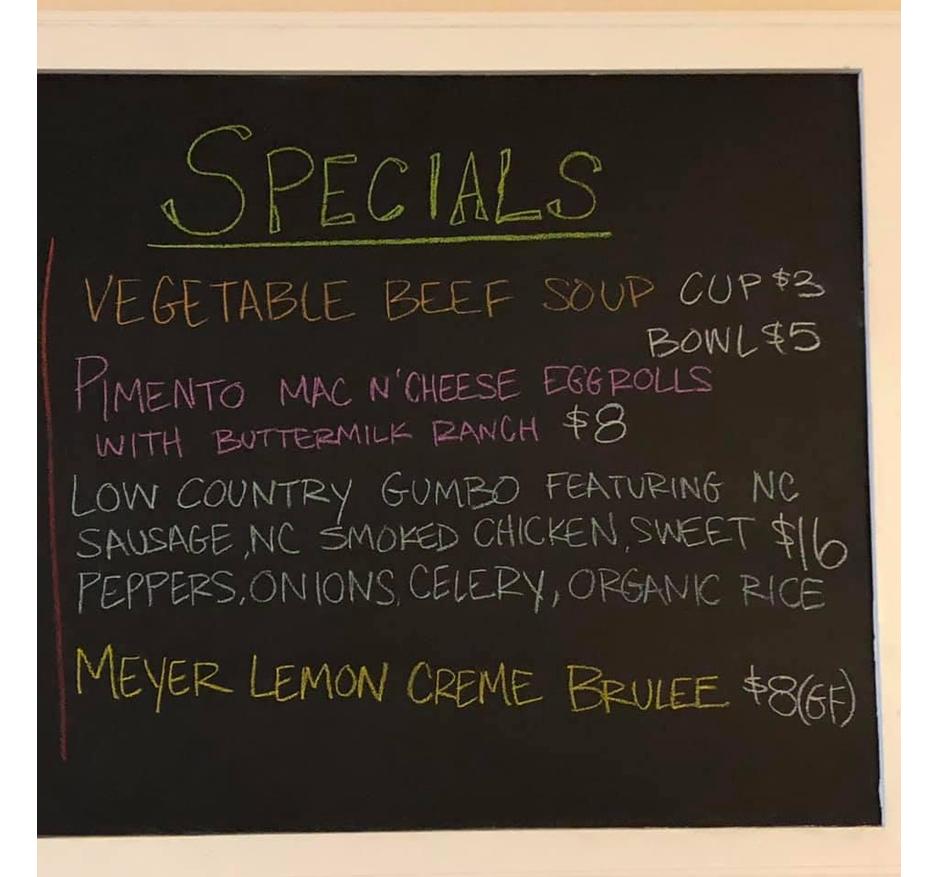 SPECIALS
VEGETABLE BEEF SOUP CUP $3
BOWL $5
PIMENTO MAC N'CHEESE EGGROLLS
WITH BUTTERMILK RANCH $8
LOW COUNTRY GUMBO FEATURING NC
SAUSAGE, NC SMOKED CHICKEN, SWEET $16
PEPPERS, ONIONS, CELERY, ORGANIC RICE
MEYER LEMON CREME BRULEE $8(GF)